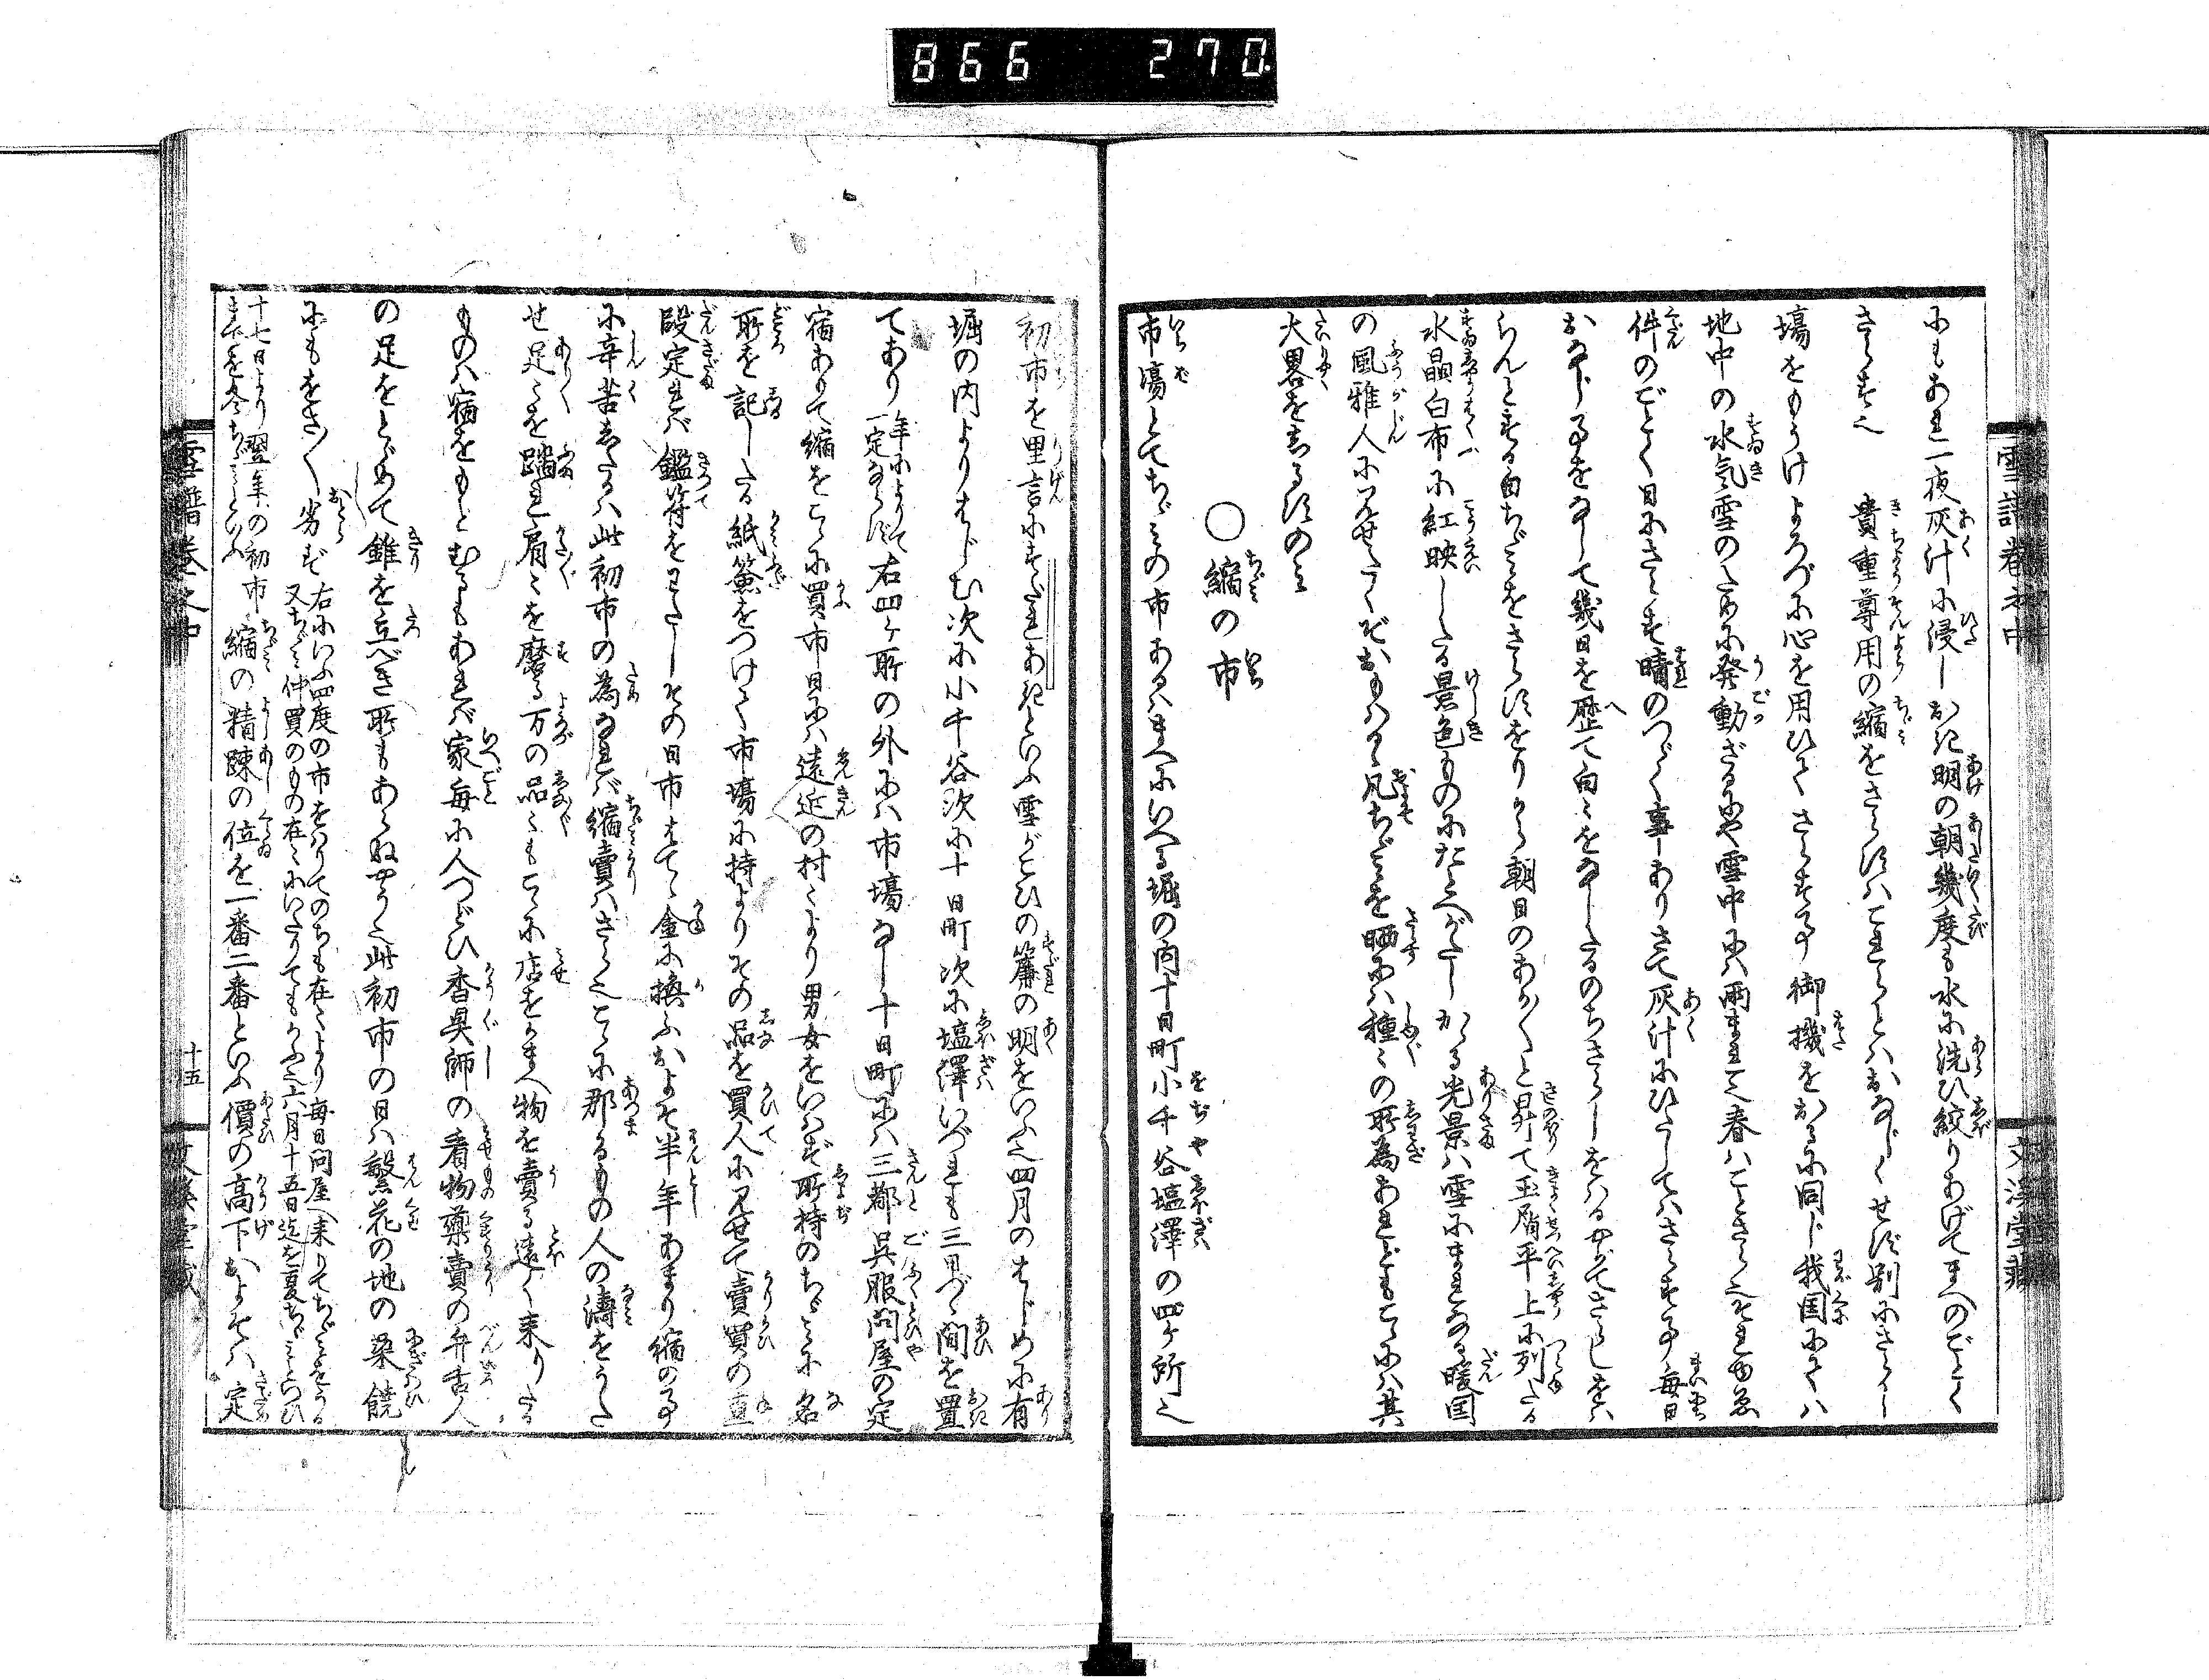 866 270.
雪譜巻之中
文溪堂藏
にもあれ一夜灰汁に浸しおき明の朝幾度も水に洗ひ絞りあげてまへのごとく
さらす也 貴重尊用の縮をさらすはこれらとはおなじくせず別にさらし
場をもうけよろづに心を用ひてさらす事御機をおるに同じ我国にては
地中の水気雪のために発動ざるにや雪中には雨まれ也春はことさら也それゆゑ
件のごとく日にさらす晴のつゞく事ありさて灰汁にひたしてはさらす事毎日
おなじ事をなして幾日を歴て白々をなしたるのちさらしをはる也やがてさらしをは
らんとする白ちゞみをさらすをりから朝日のあか〳〵と昇て玉屑平上に列たる
水晶白布に紅映したる景色ものにたとへがたしかゝる光景は雪にまれなる暖国
の風雅人に見せたくぞおもはる凡ちゞみを晒には種々の所為あれどもこゝには其
大畧をしるすのみ
○縮の市
市場とてちゞみの市あるはまへにいへる堀の内十日町小千谷塩澤の四ケ所也
初市を里言にすだれあきといふ雪がこひの簾の明をいふ也四月のはじめに有
堀の内よりはじむ次に小千谷次に十日町次に塩澤いづれも三里づゝ間を置
てあり年によりて一定ならず右四ケ所の外には市場なし十日町には三都呉服問屋の定
宿ありて縮をこゝに買市日には遠近の村々より男女をいはず所持のちゞみに名
所を記したる紙簽をつけて市場に持よりその品を買人に見せて賣買の直
段定れば鑑符をわたしその日市はてゝ金に換ふおよそ半年あまり縮の事
に辛苦したるは此初市の為なれば縮賣はさら也こゝに郡るもの人の濤をうた
せ足々を踏れ肩々を磨る万の品々もこゝに店をかまへ物を賣る遠く来りたる
ものは宿をもとむるもあれば家毎に人つどひ香具師の看物薬賣の弁舌人
の足をとゞめて錐を立べき所もあらぬやう也此初市の日は繁花の地の栄饒
にもをさ〳〵劣ず右にいふ四度の市をはりてのちも在々より毎日問屋へ来りてちゞみをうる
又ちゞみ仲買のもの在々にいたりてもかふ也六月十五日迄を夏ちゞみといひ
十七日より翌年の初市までを冬ちゞみといふ縮の精疎の位を一番二番といふ價の高下およそは定
雪譜巻之中
十五
文溪堂藏